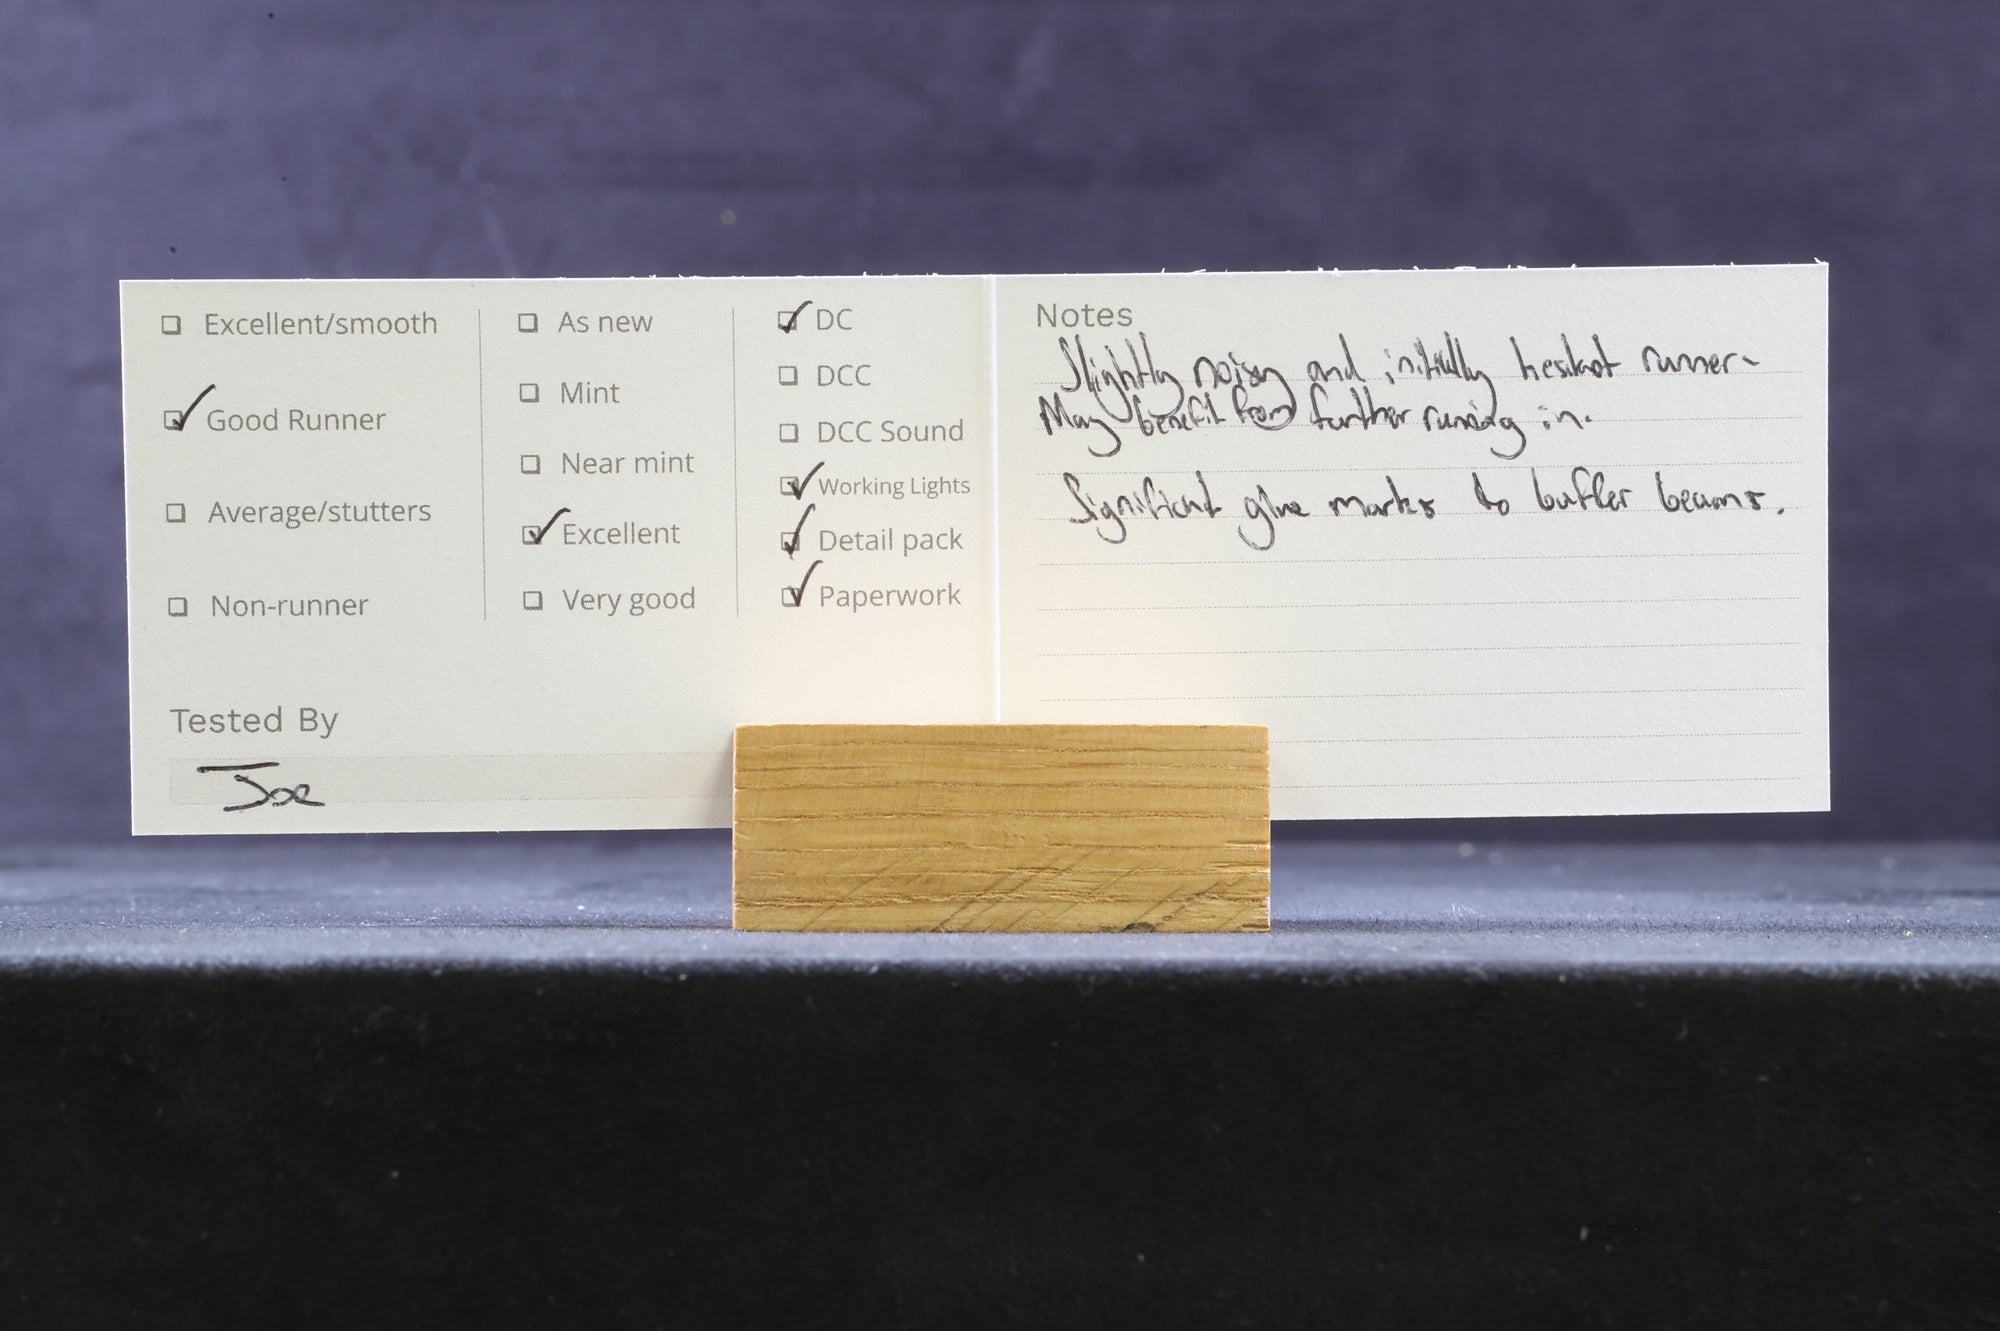 ☐ Excellent/smooth
☑ Good Runner
☐ Average/stutters
☐ Non-runner
☐ As new
☐ Mint
☐ Near mint
☑ Excellent
☐ Very good
☑ DC
☐ DCC
☐ DCC Sound
☑ Working Lights
☑ Detail pack
☑ Paperwork
Tested By
Joe
Notes
Slightly noisy and initially hesitant runner-
May benefit from further running in.
Significant glue marks to buffer beams.